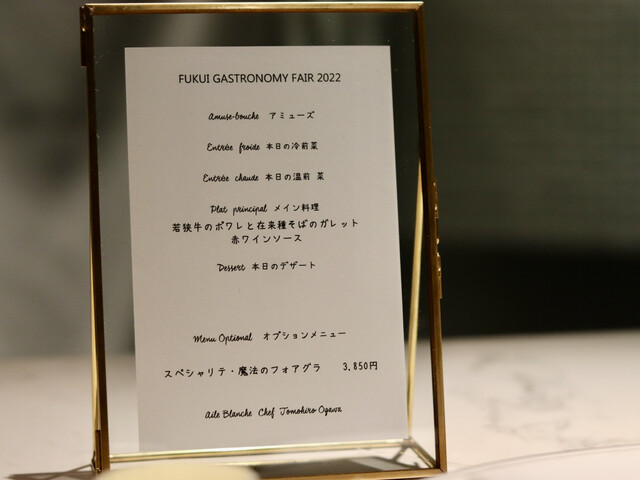 FUKUI GASTRONOMY FAIR 2022
Amuse-bouche アミューズ
Entrée froide 本日の冷前菜
Entrée chaude 本日の温前 菜
Plat principal メイン料理
若狭牛のポワレと在来種そばのガレット
赤ワインソース
Dessert 本日のデザート
Menu Optional オプションメニュー
スペシャリテ・魔法のフォアグラ 3,850円
Aile Blanche Chef Tomohiro Ogawa